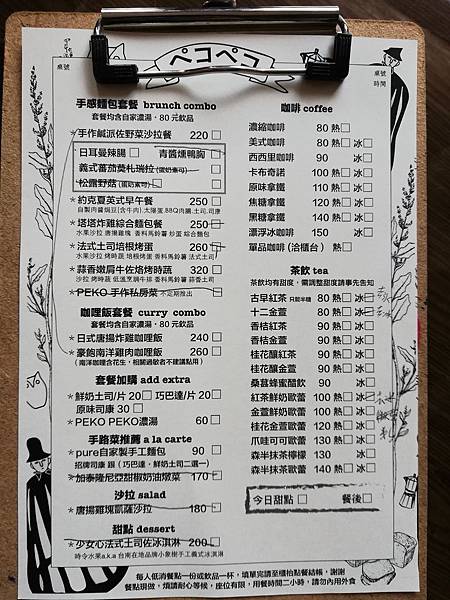 ペコペコ
桌號
桌號
時間
手感麵包套餐 brunch combo
套餐均含自家濃湯，80 元飲品
*手作鹹派佐野菜沙拉餐 220□
日耳曼辣腸□ 青醬燻鴨胸□
義式蕃茄莫札瑞拉(蛋奶素可)□
松露野菇(蛋奶素可)□
*約克夏英式早午餐 250□
自製肉醬焗豆(含牛肉) 太陽蛋.BBQ肉腸.土司.司康
*塔塔炸雞綜合麵包餐 250□
水果沙拉 唐揚雞塊 香料馬鈴薯 炒蛋 綜合麵包
*法式土司培根烤蛋 260□
水果沙拉 烤時蔬 培根烤蛋 香料馬鈴薯 法式土司
*蒜香嫩肩牛佐培烤時蔬 320□
沙拉 烤時蔬 低溫烹調牛排 香料馬鈴薯 蒜香土司
*PEKO 手作私房菜 *不定期推出□
咖哩飯套餐 curry combo
套餐均含自家濃湯，80 元飲品
*日式唐揚炸雞咖哩飯 240□
*豪飽南洋雞肉咖哩飯 260□
(南洋咖哩含花生，相關過敏者不建議點用)
套餐加購 add extra
*鮮奶土司/片 20□ 巧巴達/片 20□
原味司康 30□
*PEKO PEKO濃湯 60□
手路菜推薦 a la carte
*pure自家製手工麵包 90□
招牌司康 跟 (巧巴達，鮮奶土司二選一)
*加泰隆尼亞甜椒奶油燉菜 170□
沙拉 salad
*唐揚雞塊凱薩沙拉 180□
甜點 dessert
*少女心法式土司佐冰淇淋 200□
時令水果a.k.a 台南在地品牌小象樹手工義式冰淇淋
咖啡 coffee
濃縮咖啡 80 熱□
美式咖啡 80 熱□ 冰□
西西里咖啡 90 冰□
卡布奇諾 100 熱□ 冰□
原味拿鐵 110 熱□ 冰□
焦糖拿鐵 120 熱□ 冰□
黑糖拿鐵 140 熱□ 冰□
漂浮冰咖啡 150 冰□
單品咖啡 (洽櫃台) 熱□
茶飲 tea
茶飲均有甜度，需調整甜度請事先告知
古早紅茶 只能半糖 80 熱□ 冰□
十二金萱 80 熱□ 冰□
香桔紅茶 90 熱□ 冰□
香桔金萱 90 熱□ 冰□
桂花釀紅茶 90 熱□ 冰□
桂花釀金萱 90 熱□ 冰□
桑葚蜂蜜醋飲 90 冰□
紅茶鮮奶歐蕾 100 熱□ 冰□
金萱鮮奶歐蕾 100 熱□ 冰□
桂花釀歐蕾 120 熱□ 冰□
爪哇可可歐蕾 130 熱□ 冰□
森半抹茶檸檬 130 冰□
森半抹茶歐蕾 140 熱□ 冰□
今日甜點□ 餐後□
每人低消餐點一份或飲品一杯，填單完請至櫃枱點餐結帳，謝謝
餐點現做，煩請耐心等候，座位有限，用餐時間二小時，請勿內用外食